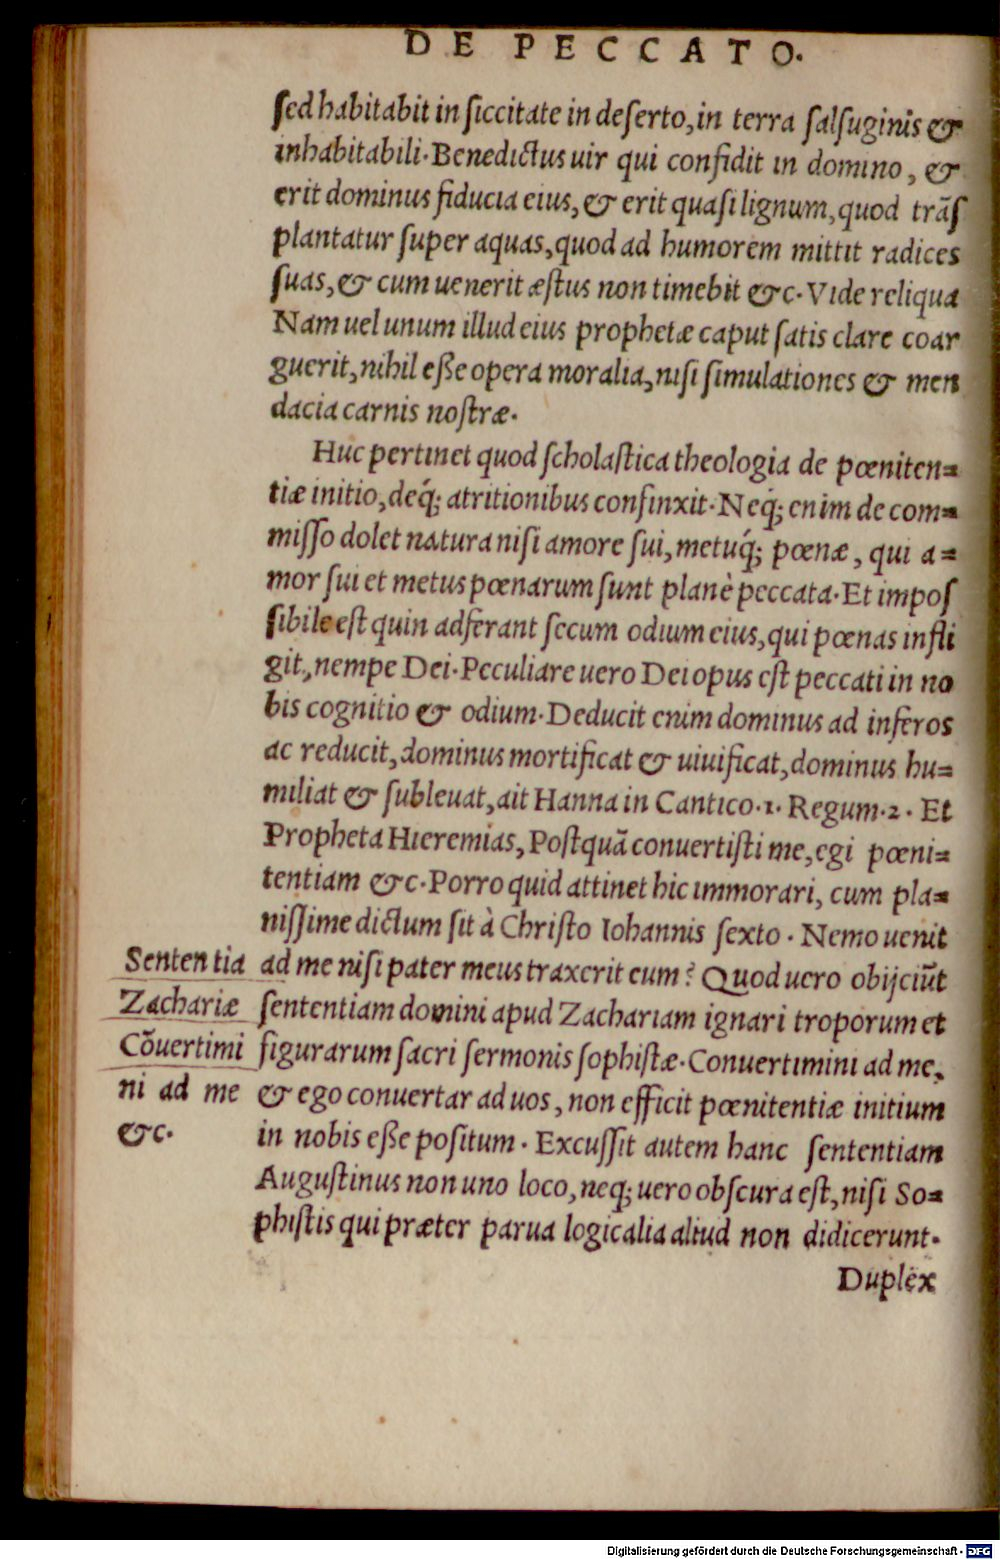 DE PECCATO.
ſed habitabit in ſiccitate in deſerto, in terra ſalſuginis &
inhabitabili. Benedictus uir qui confidit in domino, &
erit dominus fiducia eius, & erit quaſi lignum, quod trãſ
plantatur ſuper aquas, quod ad humorem mittit radices
ſuas, & cum uenerit æſtus non timebit &c. Vide reliqua
Nam uel unum illud eius prophetæ caput ſatis clare coar
guerit, nihil eſſe opera moralia, niſi ſimulationes & men
dacia carnis noſtræ.
Huc pertinet quod ſcholaſtica theologia de pœniten=
tiæ initio, deq́; atritionibus confinxit. Neq́; enim de com=
miſſo dolet natura niſi amore ſui, metuq́; pœnæ, qui a=
mor ſui et metus pœnarum ſunt planè peccata. Et impoſ
ſibile eſt quin adferant ſecum odium eius, qui pœnas infli
git, nempe Dei. Peculiare uero Dei opus eſt peccati in no
bis cognitio & odium. Deducit enim dominus ad inferos
ac reducit, dominus mortificat & uiuificat, dominus hu=
miliat & ſubleuat, ait Hanna in Cantico.1. Regum.2. Et
Propheta Hieremias, Poſtquã conuertiſti me, egi pœni=
tentiam &c. Porro quid attinet hic immorari, cum pla=
niſſime dictum ſit à Chriſto Iohannis ſexto. Nemo uenit
ad me niſi pater meus traxerit eum? Quod uero obijciũt
ſententiam domini apud Zachariam ignari troporum et
figurarum ſacri ſermonis ſophiſtæ. Conuertimini ad me,
& ego conuertar ad uos, non efficit pœnitentiæ initium
in nobis eſſe poſitum. Excuſſit autem hanc ſententiam
Auguſtinus non uno loco, neq; uero obſcura eſt, niſi So=
phiſtis qui præter parua logicalia aliud non didicerunt.
Duplex
Sententia
Zachariæ
Cõuertimi
ni ad me
&c.
Digitalisierung gefördert durch die Deutsche Forschungsgemeinschaft - DFG